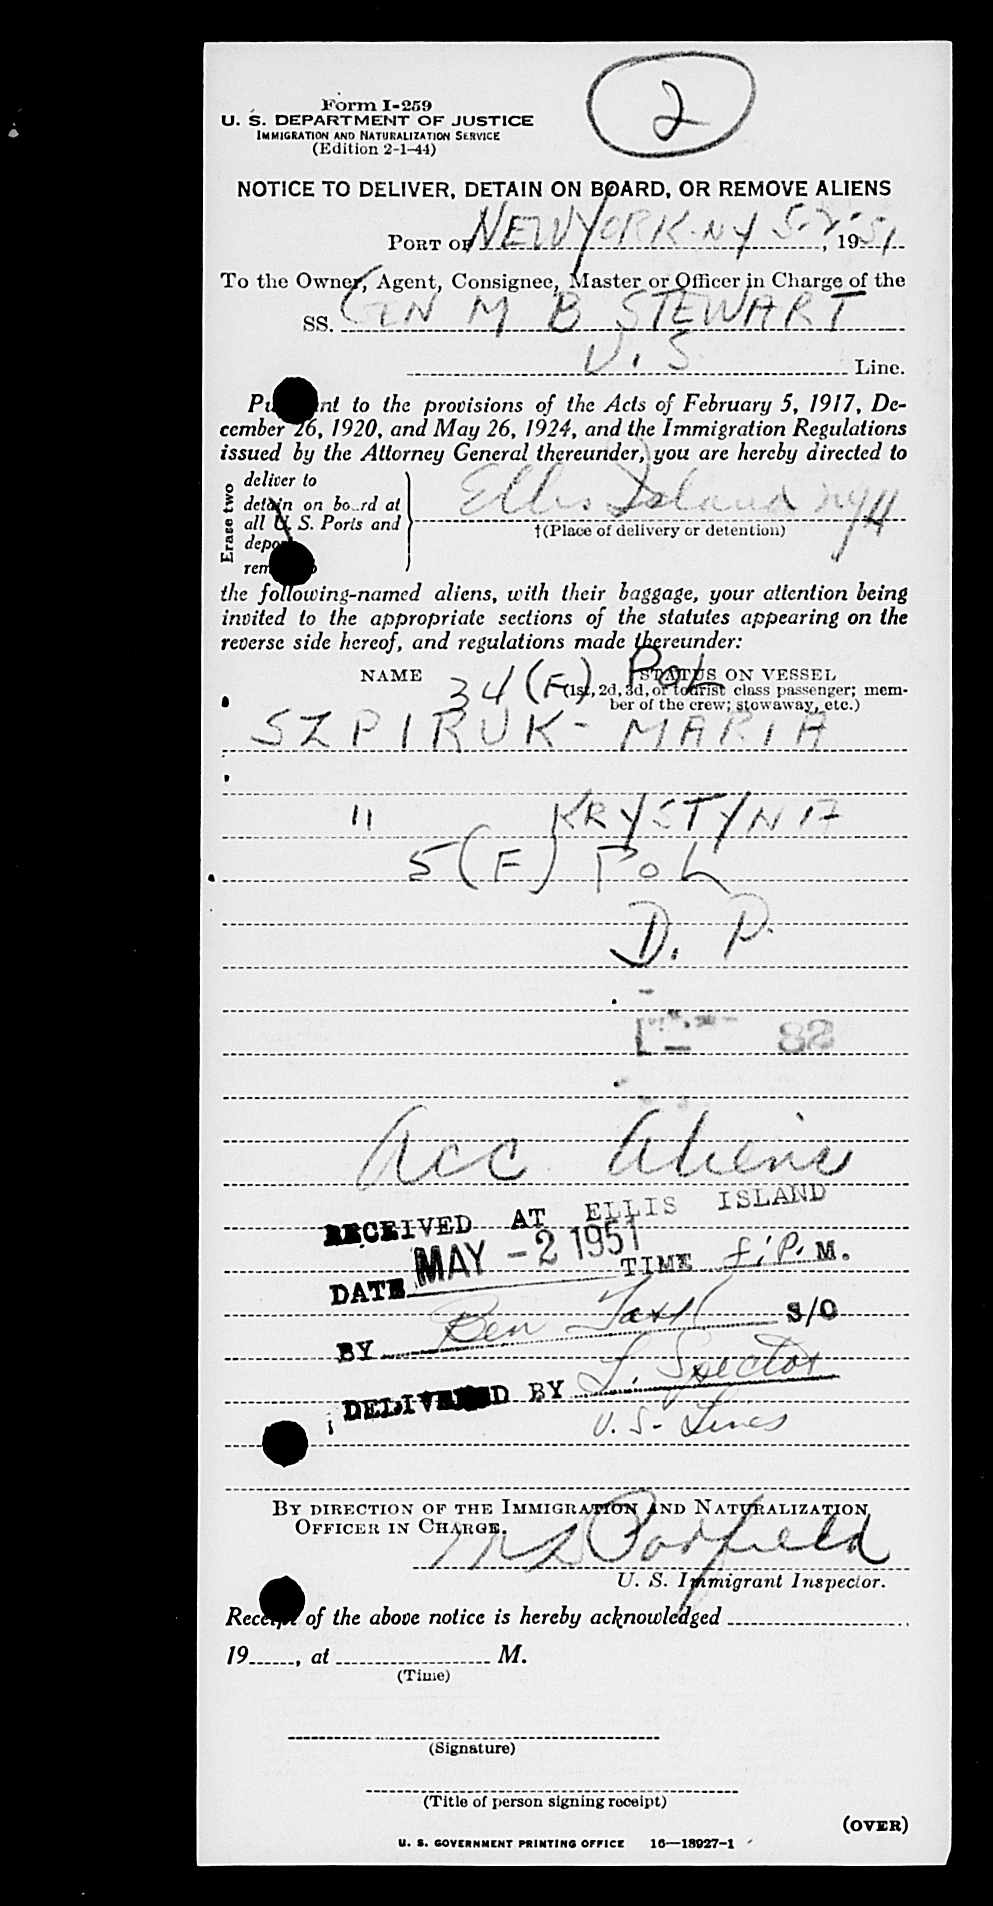 2
Form I-259
U. S. DEPARTMENT OF JUSTICE
IMMIGRATION AND NATURALIZATION SERVICE
(Edition 2-1-44)
NOTICE TO DELIVER, DETAIN ON BOARD, OR REMOVE ALIENS
PORT OF NEW YORK-NY 5-2-, 1951
To the Owner, Agent, Consignee, Master or Officer in Charge of the
SS. GEN M B STEWART
U. S. Line.
Pu nt to the provisions of the Acts of February 5, 1917, De-
cember 26, 1920, and May 26, 1924, and the Immigration Regulations
issued by the Attorney General thereunder, you are hereby directed to
Erase two
deliver to
detain on bo rd at
all U. S. Ports and
depo
rem
Ellis Island NYH
†(Place of delivery or detention)
the following-named aliens, with their baggage, your attention being
invited to the appropriate sections of the statutes appearing on the
reverse side hereof, and regulations made thereunder:
NAME STATUS ON VESSEL
34 (F) POL
(1st, 2d, 3d, or tourist class passenger; mem-
ber of the crew; stowaway, etc.)
SZPIRUK - MARIA
" KRYSTYNA
5 (F) POL
D. P.
82
Acc Aliens
RECEIVED AT ELLIS ISLAND
DATE MAY -2 1951 TIME P. M.
BY Ben S/O
DELIVERED BY I. Spector
U. S. Lines
BY DIRECTION OF THE IMMIGRATION AND NATURALIZATION
OFFICER IN CHARGE.
Porfield
U. S. Immigrant Inspector.
Receipt of the above notice is hereby acknowledged
19, at M.
(Time)
(Signature)
(Title of person signing receipt)
(OVER)
U. S. GOVERNMENT PRINTING OFFICE 16—18927-1